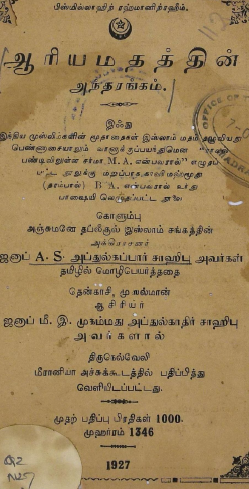 பிஸ்மில்லாஹிர் ரஹ்மானிர்ரஹீம்.
ஆரியமதத்தின்
அந்தரங்கம்.
இஃது
இந்திய முஸ்லிம்களின் மூதாதைகள் இஸ்லாம் மதம் தழுவியது
பெண்ணாசையாலும் வாளுக்குப்பயந்துமென
பண்டிலிறுன்ன சர்மா M.A. என்பவரால் எழுதப்
நூலுக்கு மறுப்பாக
(தர்பால்) B.A. என்பவரால் உர்து
பாஷையி
கொழும்பு
அஞ்சுமனே தப்லீகுல் இஸ்லாம் சங்கத்தின்
அக்கிராசனர்
ஜனாப் A. S. அப்துல்கப்பார் சாஹிபு அவர்கள்
தமிழில் மொழிபெயர்த்ததை
தென்காசி, முஸல்மான்
ஆசிரியர்
ஜனாப் மீ. இ. முகம்மது அப்துல்காதிர் சாஹிபு
அவர்களால்
திருநெல்வேலி
மீரானியா அச்சுக்கூடத்தில் பதிப்பித்து
வெளியிடப்பட்டது.
முதற் பதிப்பு பிரதிகள் 1000.
முஹர்ரம் 1346
1927